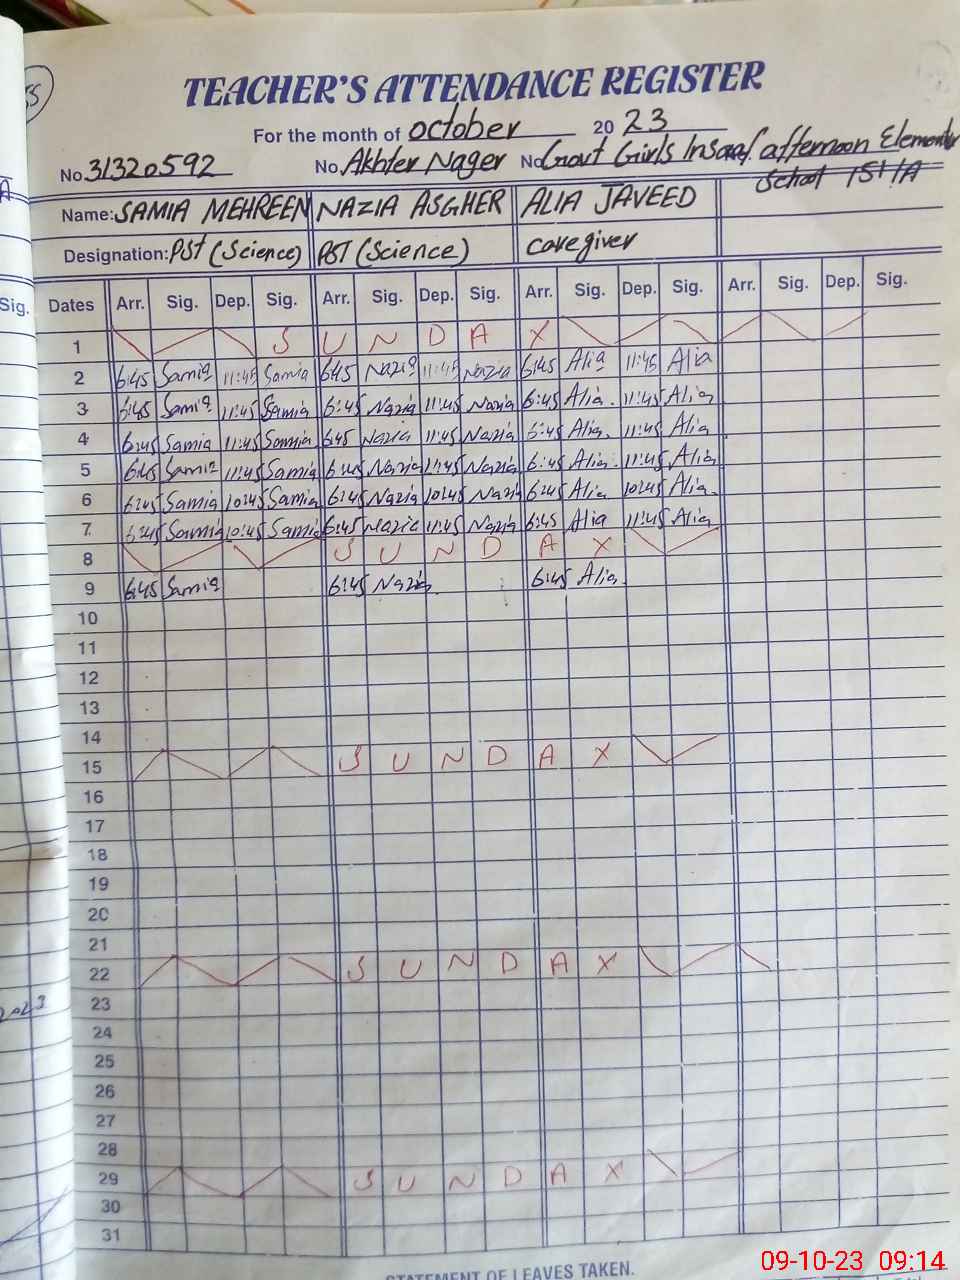 TEACHER'S ATTENDANCE REGISTER
For the month of October 2023
No. 31320592 No. Akhter Nager No Govt Girls Insaf afternoon Element
School 151/A
Name: SAMIA MEHREEN NAZIA ASGHER ALIA JAVEED
Designation: PST (Science) PST (Science) Caregiver
Sig. Dates Arr. Sig. Dep. Sig. Arr. Sig. Dep. Sig. Arr. Sig. Dep. Sig. Arr. Sig. Dep. Sig.
1 S U N D A Y
2 6:45 Samia 11:45 Samia 6:45 Nazia 11:45 Nazia 6:45 Alia 11:45 Alia
3 6:45 Samia 11:45 Samia 6:45 Nazia 11:45 Nazia 6:45 Alia 11:45 Alia
4 6:45 Samia 11:45 Samia 6:45 Nazia 11:45 Nazia 6:45 Alia 11:45 Alia
5 6:45 Samia 11:45 Samia 6:45 Nazia 11:45 Nazia 6:45 Alia 11:45 Alia
6 6:45 Samia 10:45 Samia 6:45 Nazia 10:45 Nazia 6:45 Alia 10:45 Alia
7 6:45 Samia 10:45 Samia 6:45 Nazia 11:45 Nazia 6:45 Alia 11:45 Alia
8 S U N D A Y
9 6:45 Samia 6:45 Nazia 6:45 Alia
10
11
12
13
14
15 S U N D A Y
16
17
18
19
20
21
22 S U N D A Y
23
24
25
26
27
28
29 S U N D A Y
30
31
STATEMENT OF LEAVES TAKEN.
09-10-23 09:14